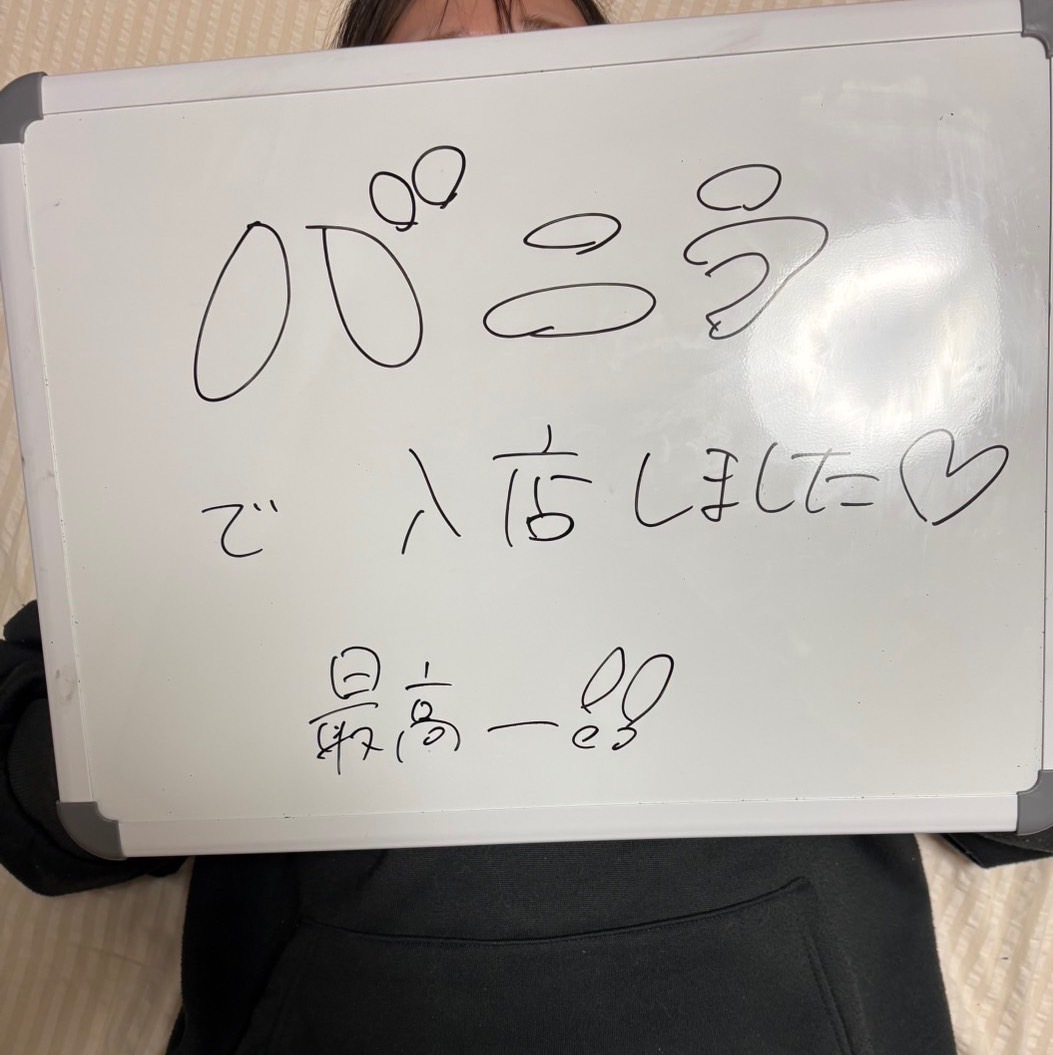 バニラ
で 入店しました♡
最高ー!!